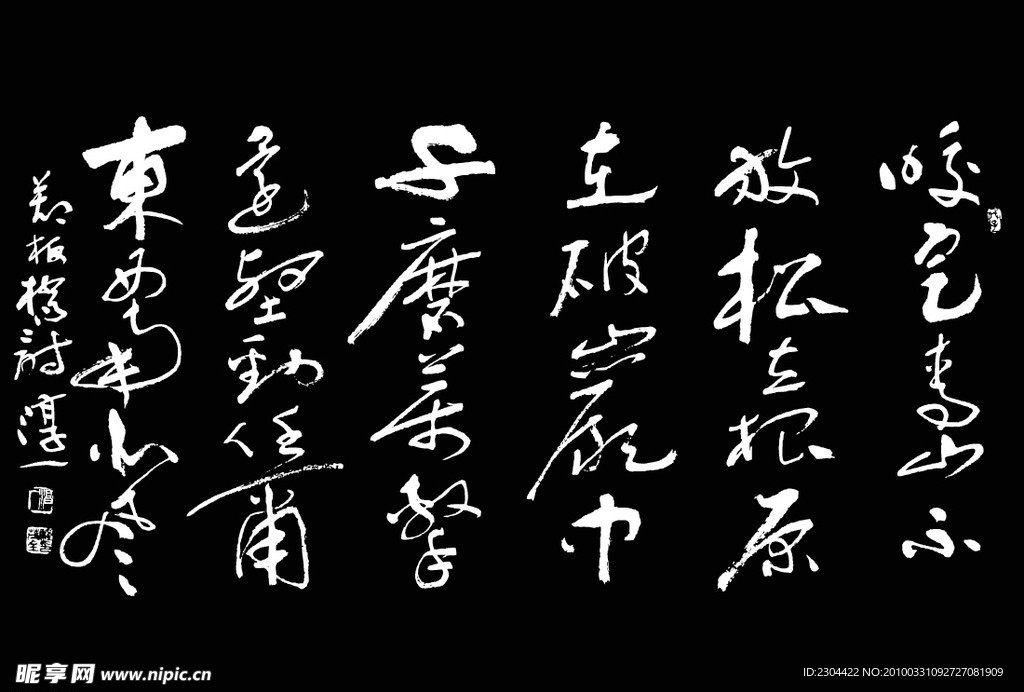 咬定青山不
放松立根原
在破巖中
千磨萬擊
還堅勁任爾
東西南北風
鄭板橋詩 淳一
昵享网 www.nipic.cn
ID:2304422 NO:20100331092727081909